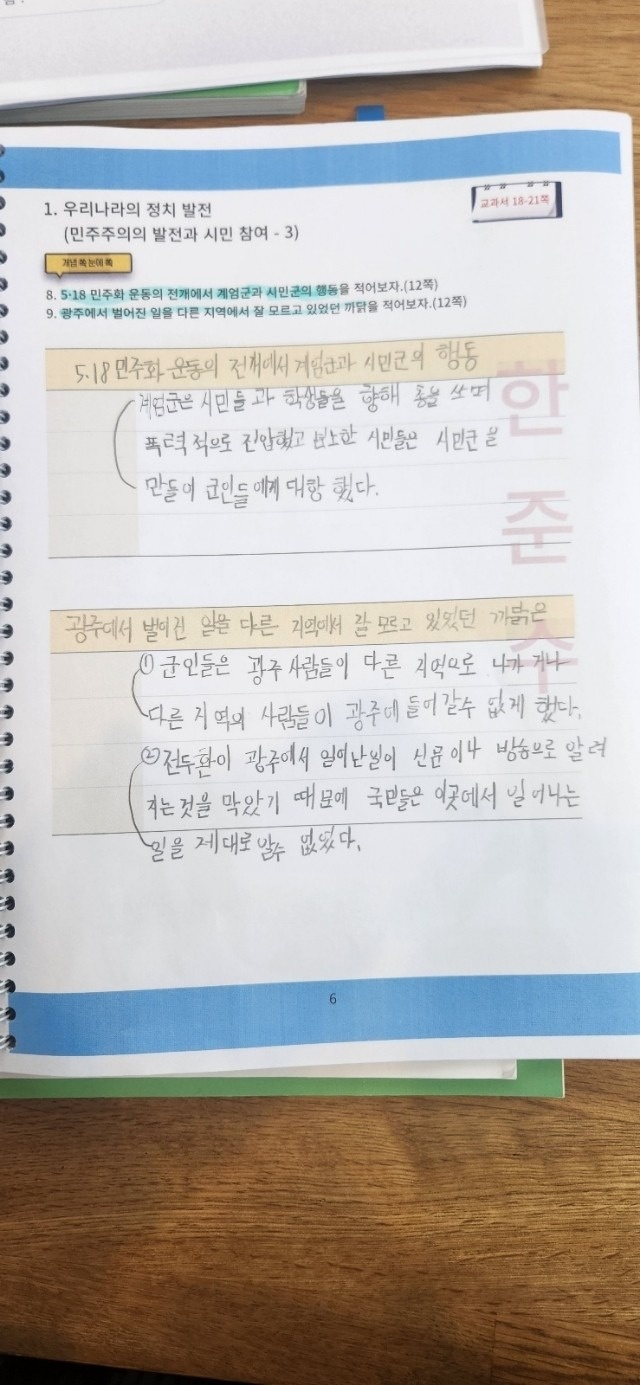 1. 우리나라의 정치 발전
교과서 18-21쪽
(민주주의의 발전과 시민 참여 - 3)
개념 쏙 눈에 쏙
8. 5·18 민주화 운동의 전개에서 계엄군과 시민군의 행동을 적어보자.(12쪽)
9. 광주에서 벌어진 일을 다른 지역에서 잘 모르고 있었던 까닭을 적어보자.(12쪽)
5.18 민주화 운동의 전개에서 계엄군과 시민군의 행동
계엄군은 시민들과 학생들을 향해 총을 쏘며
폭력적으로 진압했고 분노한 시민들은 시민군을
만들어 군인들에게 대항 했다.
한
준
수
광주에서 벌어진 일을 다른 지역에서 잘 모르고 있었던 까닭은
① 군인들은 광주 사람들이 다른 지역으로 나가거나
다른 지역의 사람들이 광주에 들어갈수 없게 했다.
② 전두환이 광주에서 일어난일이 신문이나 방송으로 알려
지는것을 막았기 때문에 국민들은 이곳에서 일어나는
일을 제대로 알수 없었다.
6